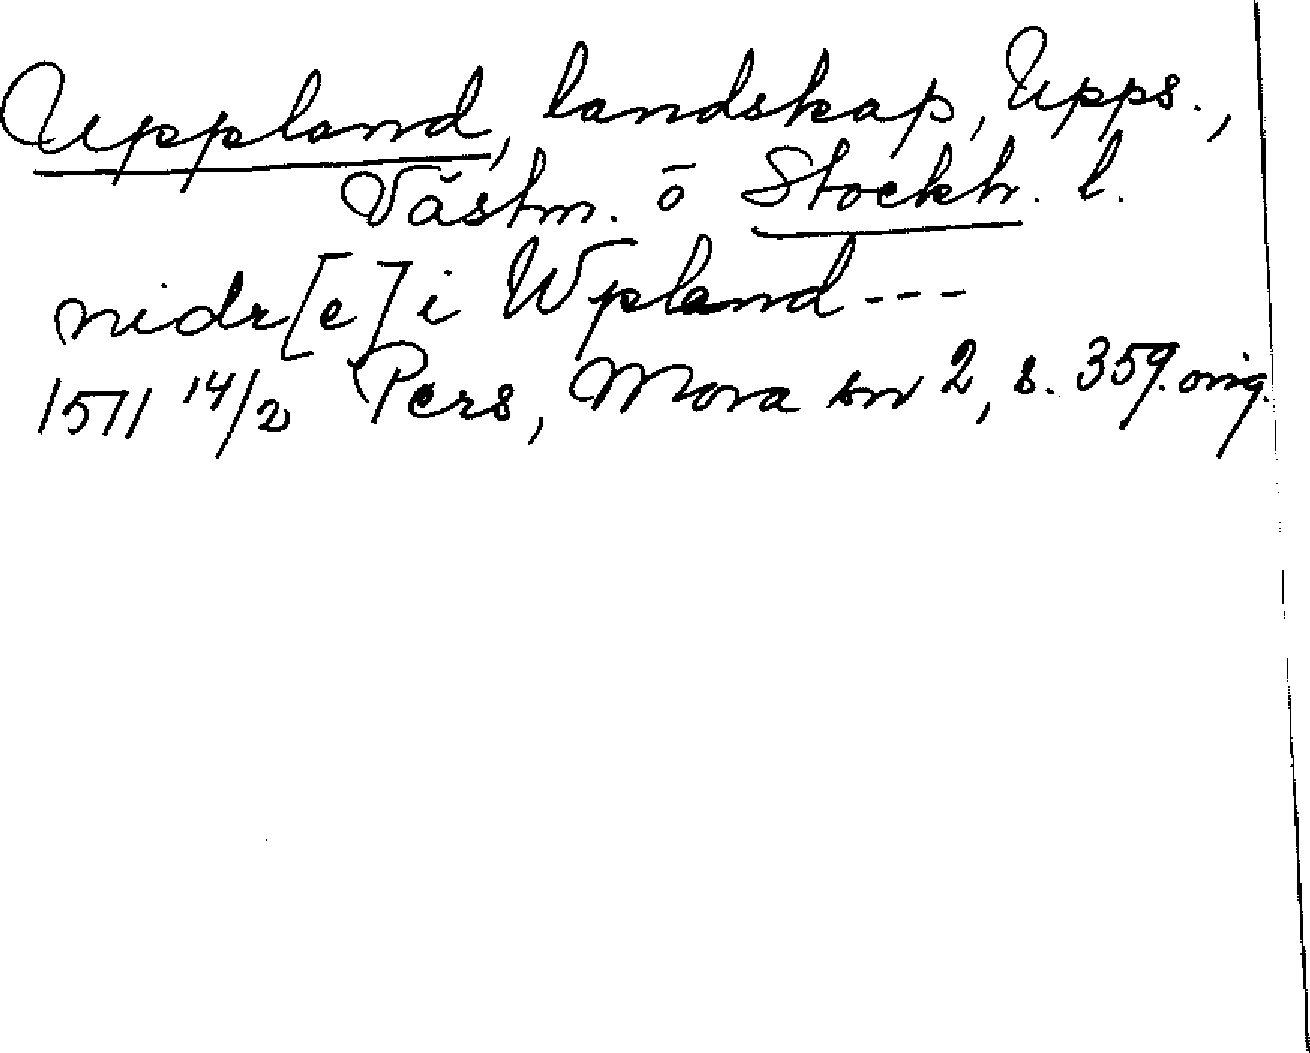 Uppland, landskap, Upps.,
Västm. o Stockh. l.
nidr[e] i Wpland ---
1571 14/2 Pers, Mora sn 2, s. 359. orig.